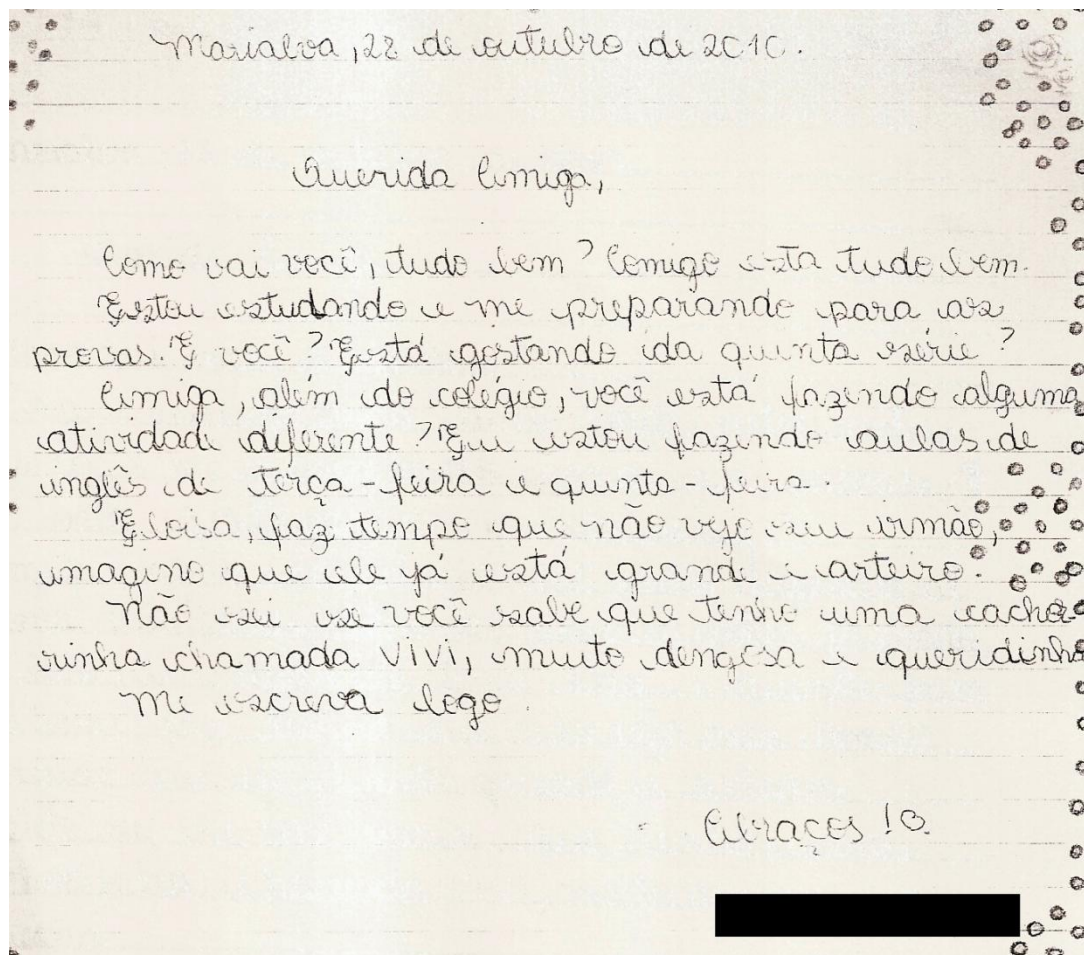 Marialva, 28 de outubro de 2010.
Querida Amiga,
Como vai você, tudo bem? Comigo esta tudo bem.
Estou estudando e me preparando para as
provas. E você? Está gostando da quinta série?
Amiga, além do colégio, você está fazendo alguma
atividade diferente? Eu estou fazendo aulas de
inglês de terça-feira e quinta-feira.
Eloisa, faz tempo que não vejo seu irmão,
imagino que ele já está grande e arteiro.
Não sei se você sabe que tenho uma cachor
rinha chamada Vivi, muito dengosa e queridinha
Me escreva logo.
Abraços!